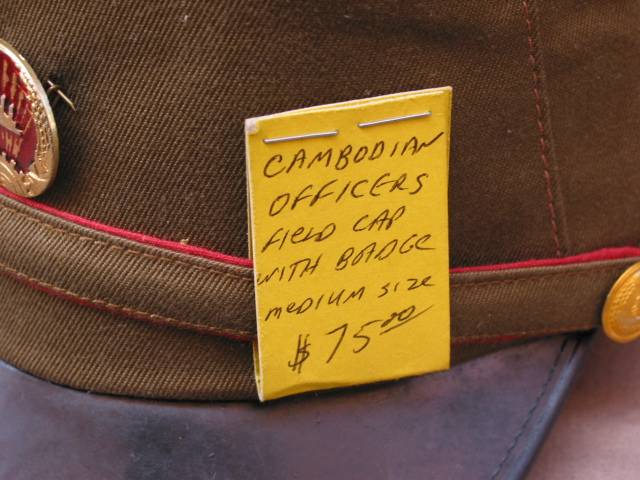 CAMBODIAN
OFFICERS
FIELD CAP
WITH BADGE
MEDIUM SIZE
$75.00